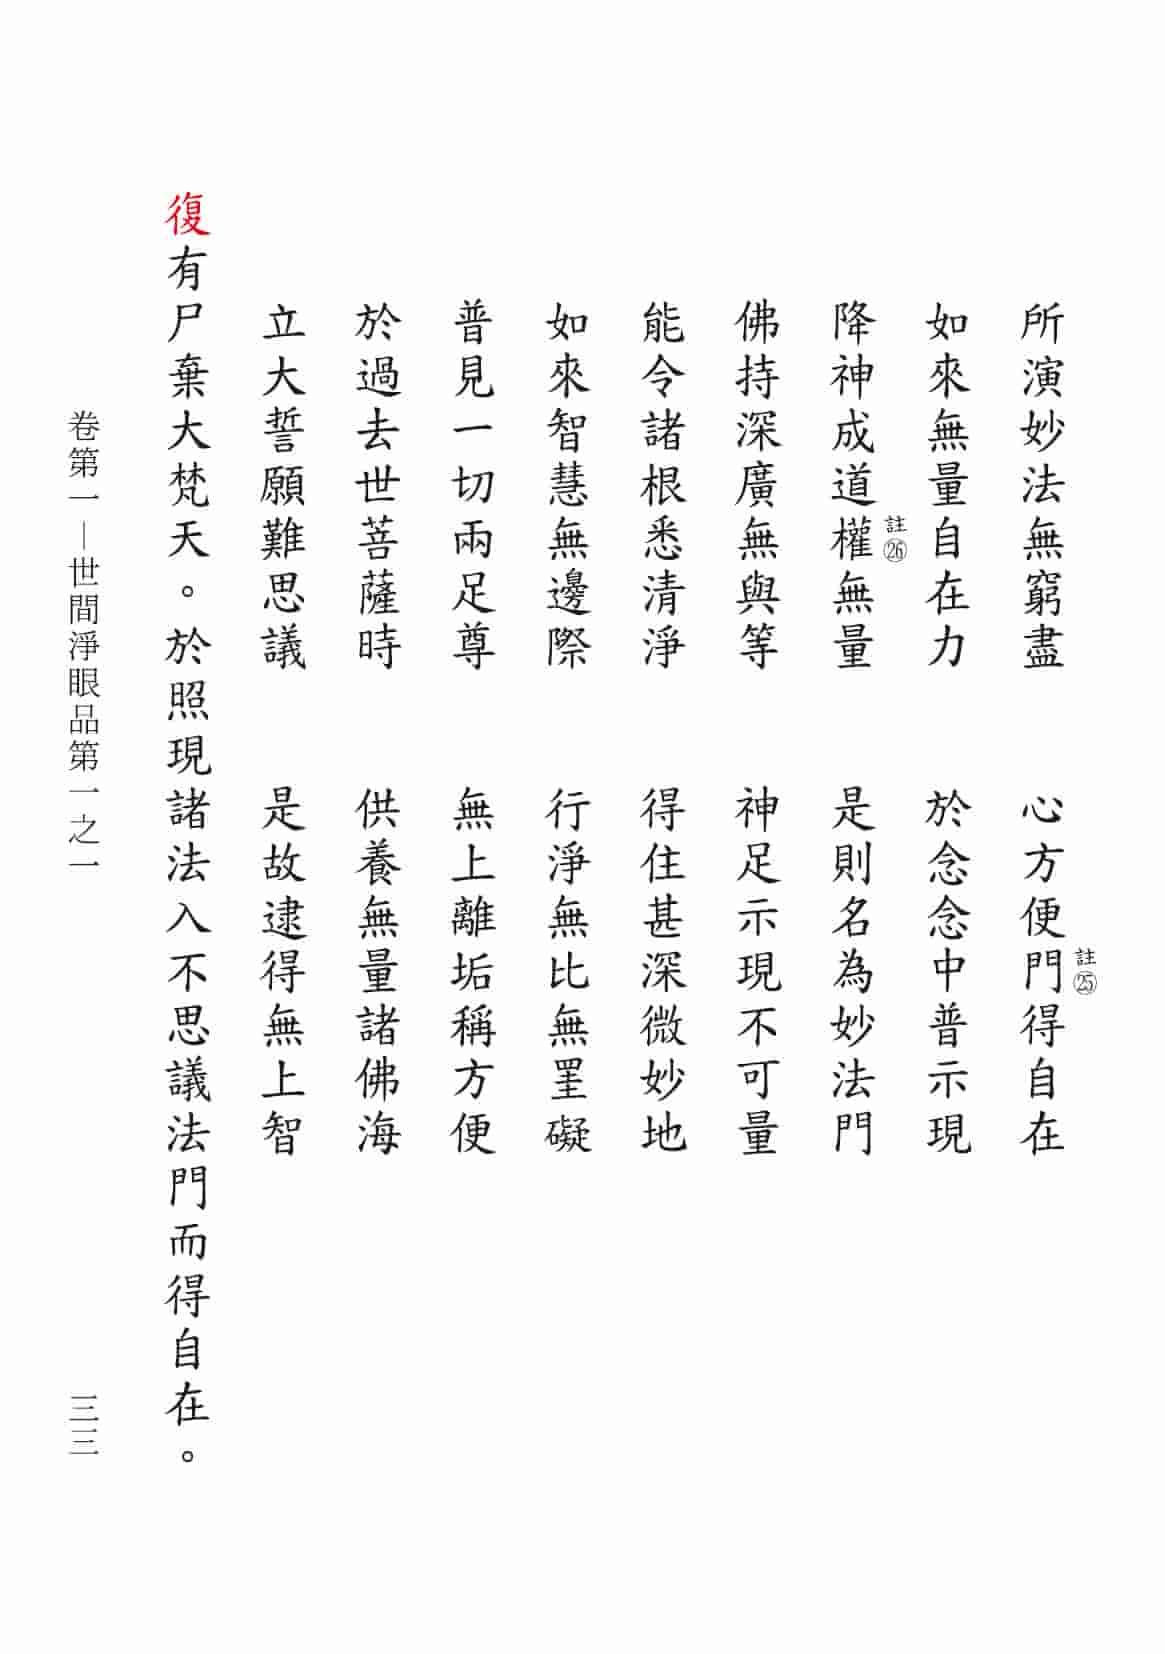 所演妙法無窮盡　心方便門註㉕得自在
如來無量自在力　於念念中普示現
降神成道權註㉖無量　是則名為妙法門
佛持深廣無與等　神足示現不可量
能令諸根悉清淨　得住甚深微妙地
如來智慧無邊際　行淨無比無罣礙
普見一切兩足尊　無上離垢稱方便
於過去世菩薩時　供養無量諸佛海
立大誓願難思議　是故逮得無上智
復有尸棄大梵天。於照現諸法入不思議法門而得自在。
卷第一—世間淨眼品第一之一　三三